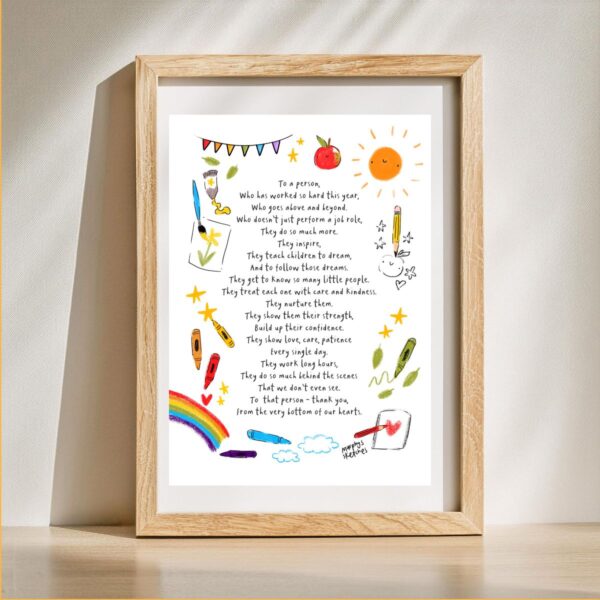 To a person,
Who has worked so hard this year,
Who goes above and beyond.
Who doesn't just perform a job role,
They do so much more.
They inspire,
They teach children to dream,
And to follow those dreams.
They get to know so many little people.
They treat each one with care and kindness.
They nurture them.
They show them their strength,
Build up their confidence.
They show love, care, patience
Every single day.
They work long hours,
They do so much behind the scenes
That we don't even see.
To that person - thank you,
from the very bottom of our hearts.
murphys
sketches